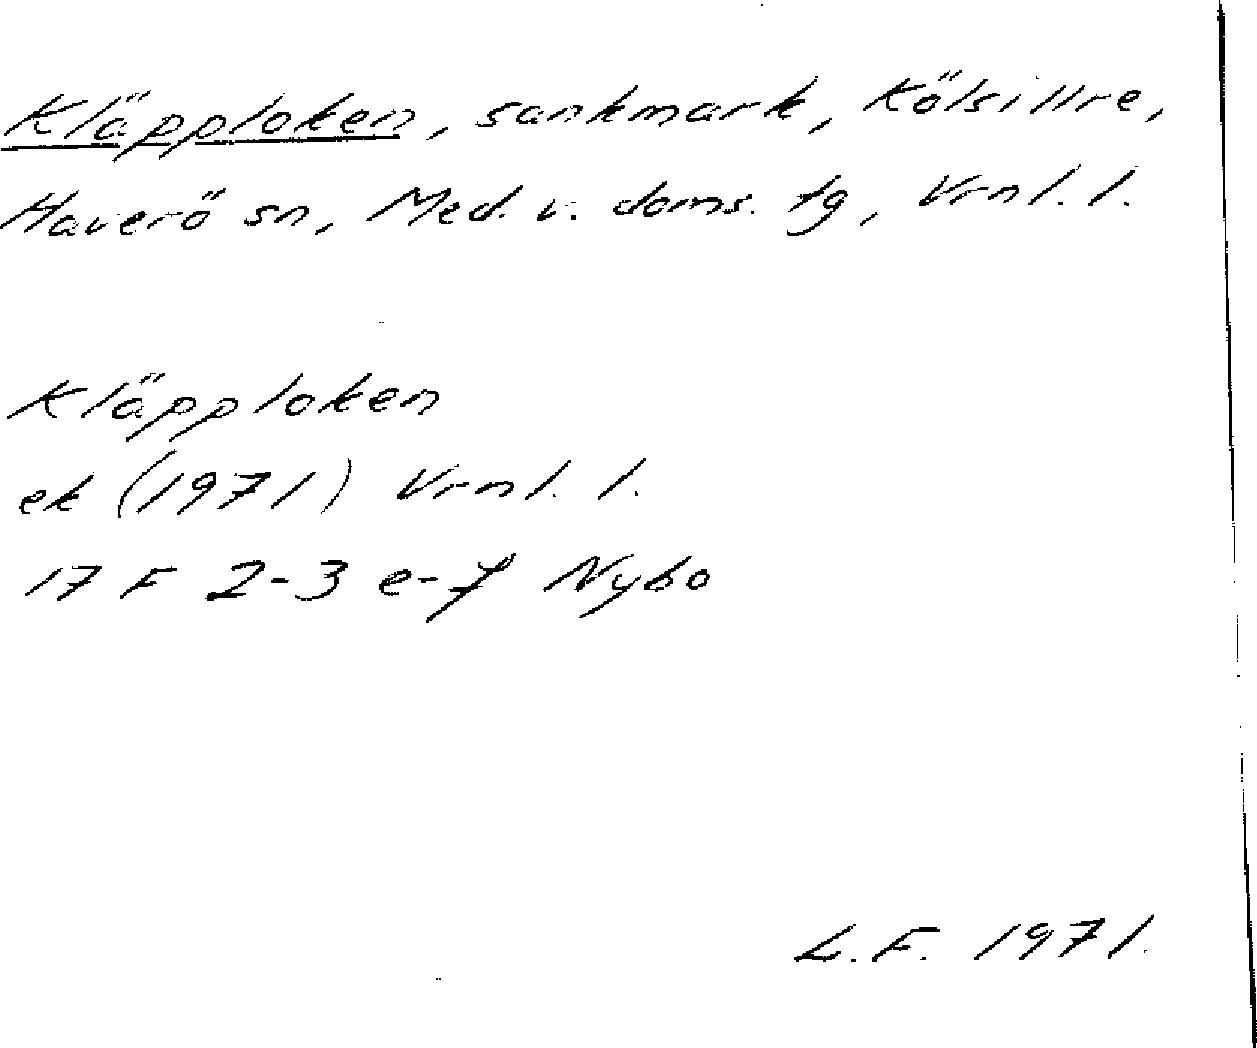 Kläpploken, sankmark, Kölsillre,
Haverö sn, Med. v. doms. tg, Vrnl. l.
Kläpploken
ek (1971) Vrnl. l.
17 F 2-3 e-f Nybo
L.F. 1971.